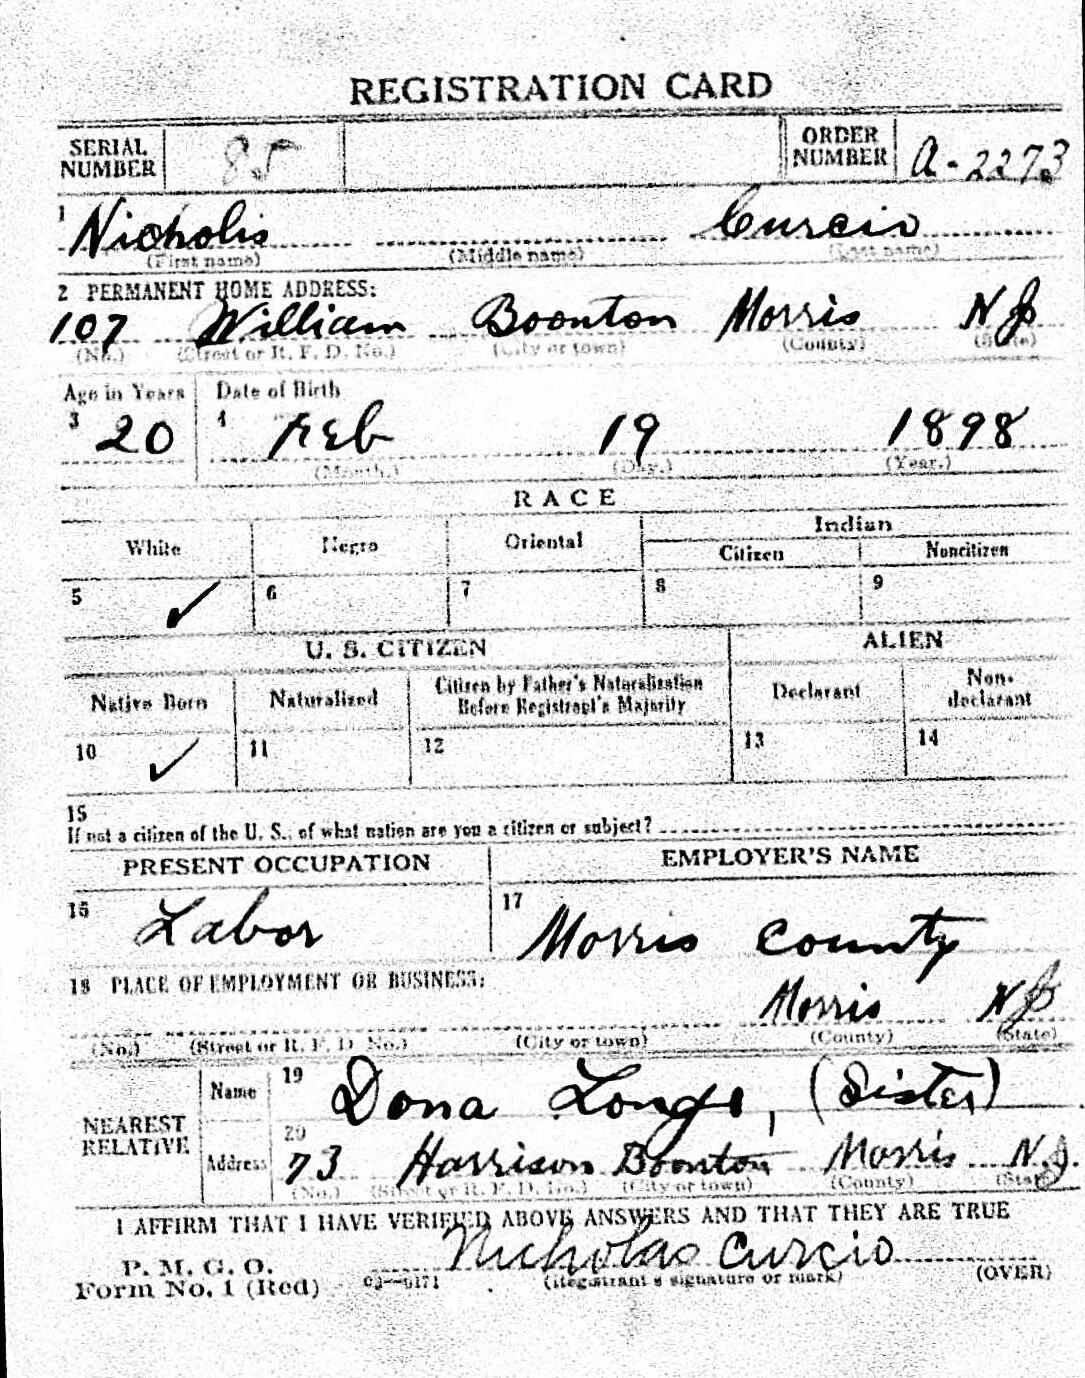 REGISTRATION CARD
SERIAL NUMBER 85 ORDER NUMBER A-2273
1 Nicholis Curcio
(First name) (Middle name) (Last name)
2 PERMANENT HOME ADDRESS:
107 William Boonton Morris NJ
(No.) (Street or R. F. D. No.) (City or town) (County) (State)
Age in Years Date of Birth
3 20 4 Feb 19 1898
(Month.) (Day.) (Year.)
RACE
White Negro Oriental Indian
Citizen Noncitizen
5 ✓ 6 7 8 9
U. S. CITIZEN ALIEN
Native Born Naturalized Citizen by Father's Naturalization Before Registrant's Majority Declarant Non-declarant
10 ✓ 11 12 13 14
15
If not a citizen of the U. S., of what nation are you a citizen or subject?
PRESENT OCCUPATION EMPLOYER'S NAME
16 Labor 17 Morris County
18 PLACE OF EMPLOYMENT OR BUSINESS:
Morris NJ
(No.) (Street or R. F. D. No.) (City or town) (County) (State)
NEAREST RELATIVE
Name 19 Dona Longo, (Sister)
Address 20 73 Harrison Boonton Morris N.J.
(No.) (Street or R. F. D. No.) (City or town) (County) (State)
I AFFIRM THAT I HAVE VERIFIED ABOVE ANSWERS AND THAT THEY ARE TRUE
P. M. G. O.
Form No. 1 (Red) 03—6171 Nicholas Curcio
(Registrant's signature or mark) (OVER)